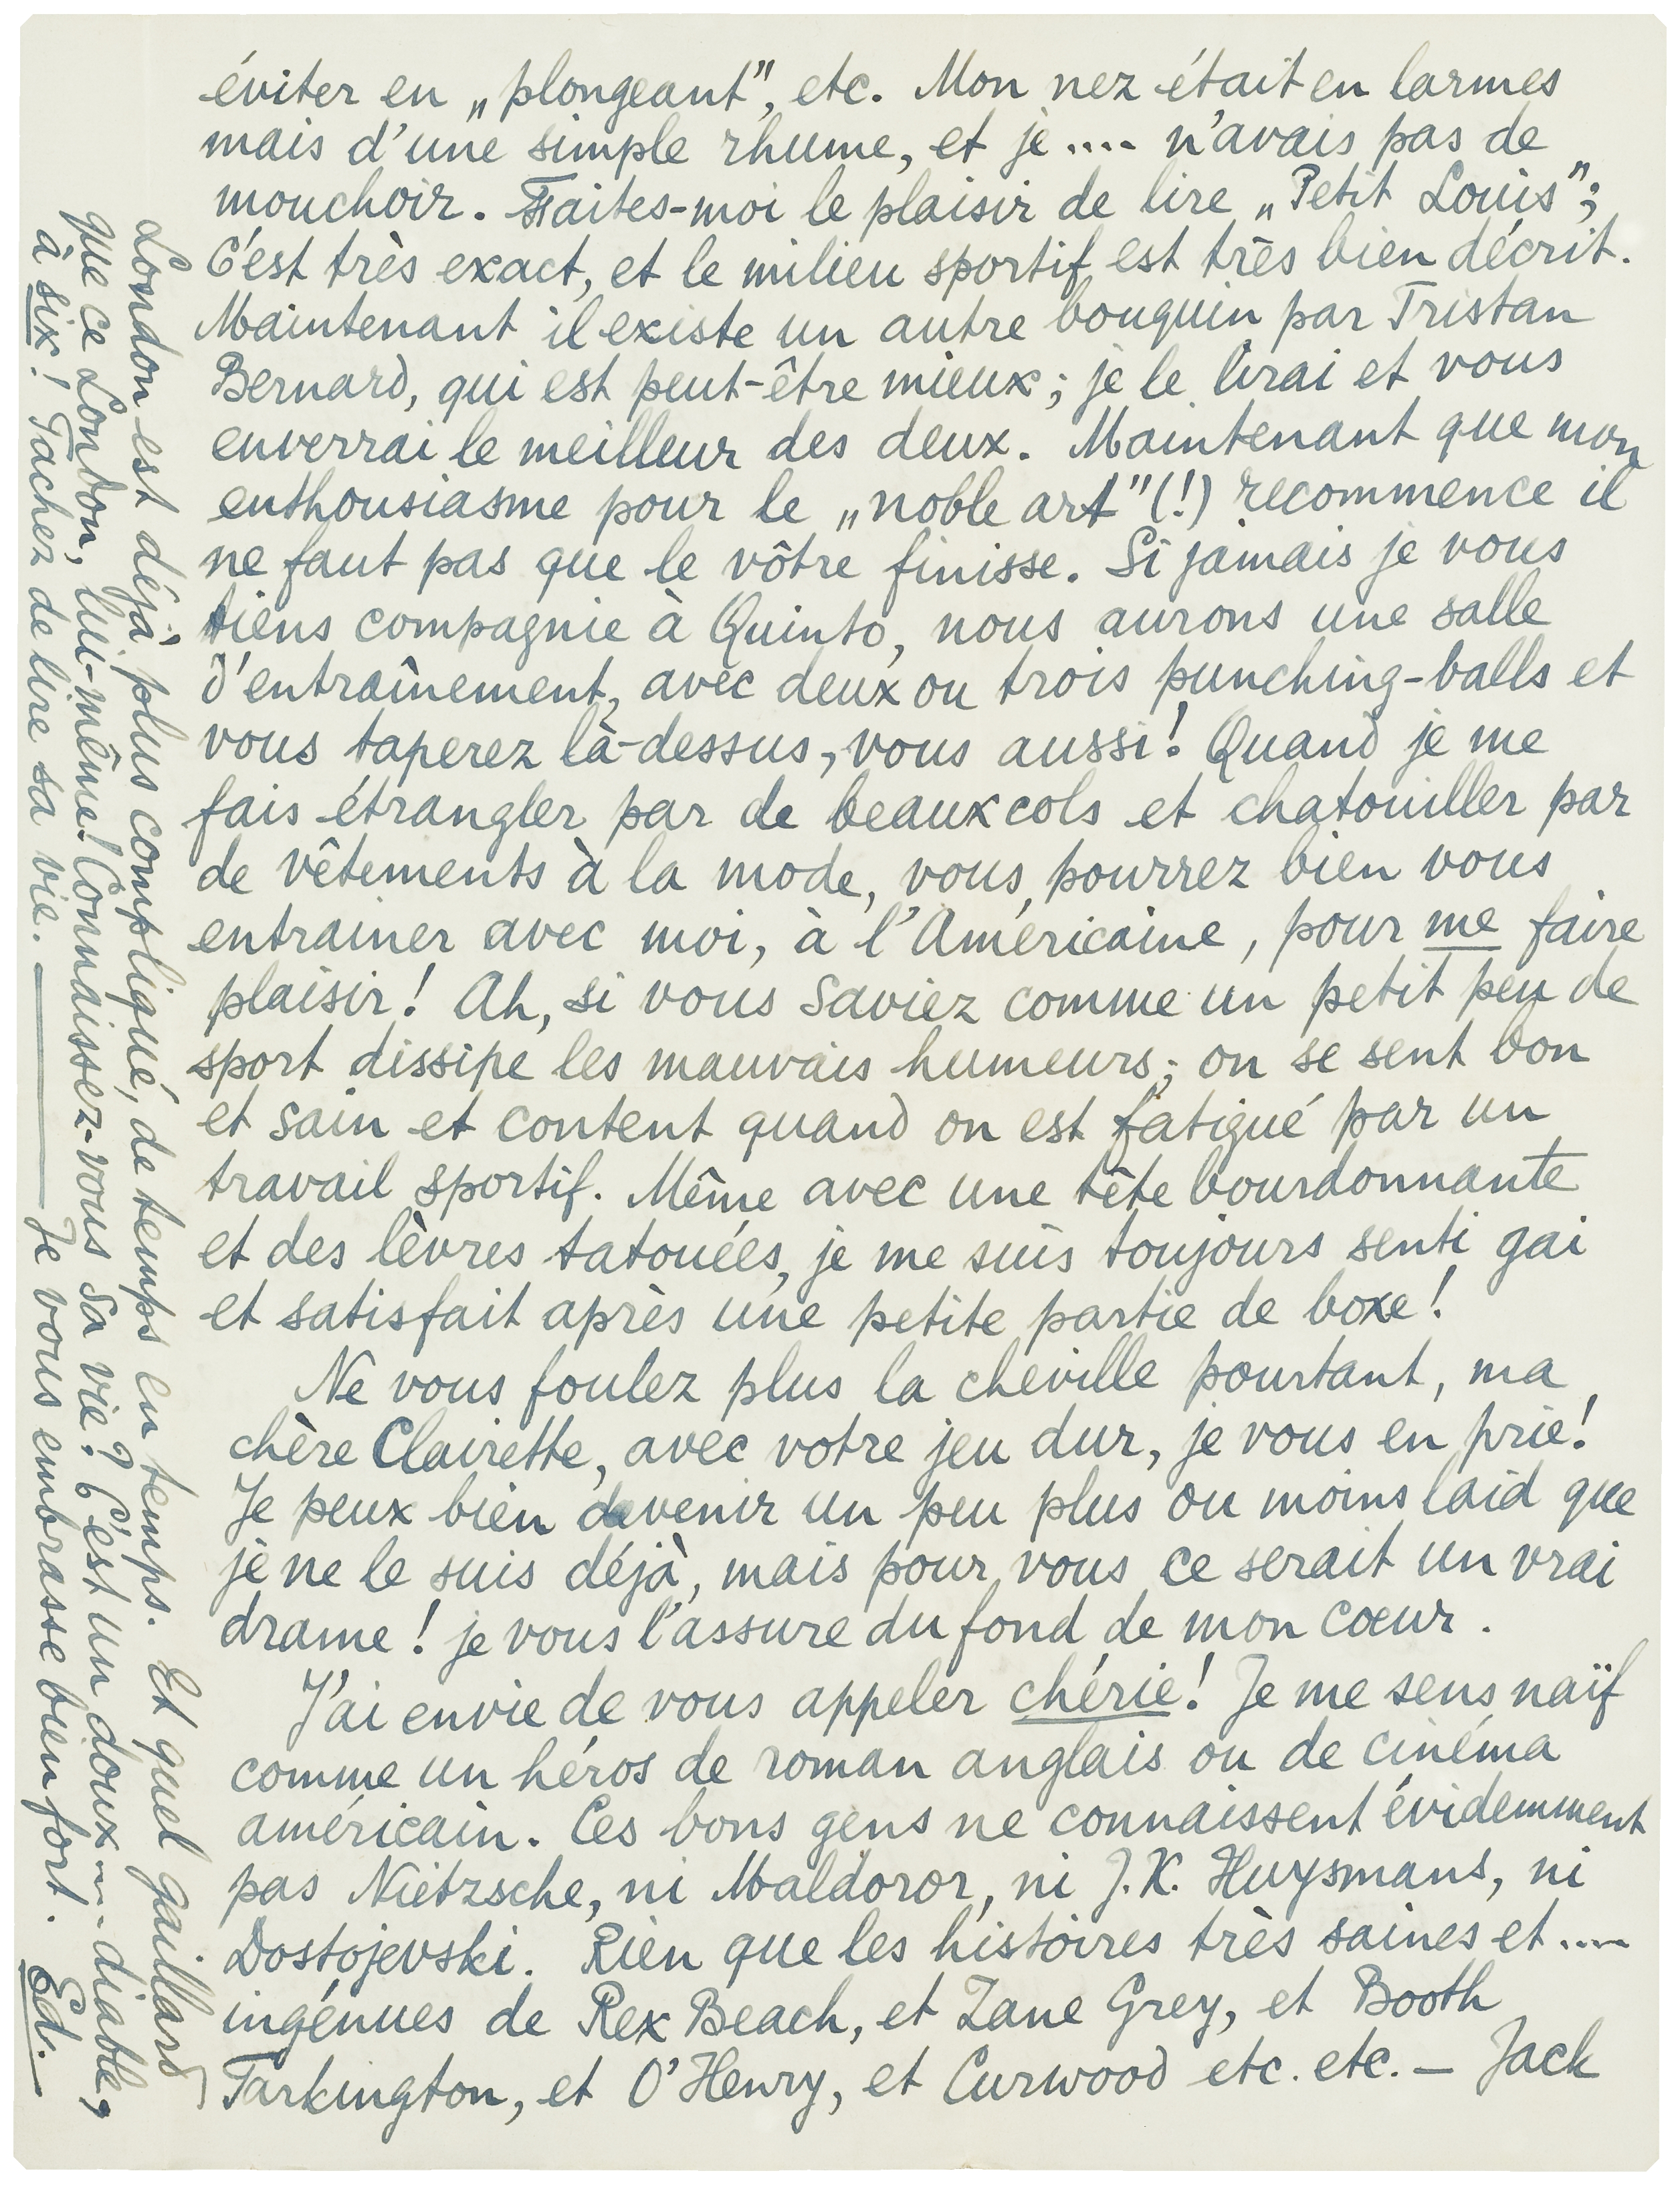 éviter en „plongeant", etc. Mon nez était en larmes
mais d'une simple rhume, et je .... n'avais pas de
mouchoir. Faites-moi le plaisir de lire „Petit Louis";
C'est très exact, et le milieu sportif est très bien décrit.
Maintenant il existe un autre bouquin par Tristan
Bernard, qui est peut-être mieux; je le lirai et vous
enverrai le meilleur des deux. Maintenant que mon
enthousiasme pour le „noble art"(!) recommence il
ne faut pas que le vôtre finisse. Si jamais je vous
tiens compagnie à Quinto, nous aurons une salle
d'entraînement, avec deux ou trois punching-balls et
vous taperez là-dessus, vous aussi! Quand je me
fais étrangler par de beaux cols et chatouiller par
de vêtements à la mode, vous pourrez bien vous
entrainer avec moi, à l'Américaine, pour me faire
plaisir! Ah, si vous saviez comme un petit peu de
sport dissipe les mauvais humeurs; on se sent bon
et sain et content quand on est fatigué par un
travail sportif. Même avec une tête bourdonnante
et des lèvres tatouées, je me suis toujours senti gai
et satisfait après une petite partie de boxe!
Ne vous foulez plus la cheville pourtant, ma
chère Clairette, avec votre jeu dur, je vous en prie!
Je peux bien devenir un peu plus ou moins laid que
je ne le suis déjà, mais pour vous ce serait un vrai
drame! je vous l'assure du fond de mon cœur.
J'ai envie de vous appeler chérie! Je me sens naïf
comme un héros de roman anglais ou de cinéma
américain. Ces bons gens ne connaissent évidemment
pas Nietzsche, ni Maldoror, ni J.K. Huysmans, ni
Dostojevski. Rien que les histoires très saines et ....
ingénues de Rex Beach, et Zane Grey, et Booth
Tarkington, et O'Henry, et Curwood etc. etc. — Jack
London est déjà plus compliqué, de temps en temps. Et quel gaillard
que ce London, lui-même! Connaissez-vous sa vie? C'est un doux .... diable,
à six! Tachez de lire sa vie. — Je vous embrasse bien fort. Ed.